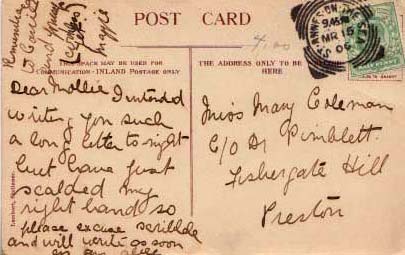 Remember
to Cecil
and your
Maggie
POST CARD
4.00
ST ANNES-ON-THE-SEA
9.45 PM
MR 15
06
THIS SPACE MAY BE USED FOR
COMMUNICATION - INLAND POSTAGE ONLY
THE ADDRESS ONLY TO BE
WRITTEN HERE
Dear Mollie I intended
writing you such
a long letter to night
but have just
scalded my
right hand so
please excuse scribble
and will write as soon
as am able
Miss Mary Coleman
C/o Dr Pimblett
Fishergate Hill
Preston